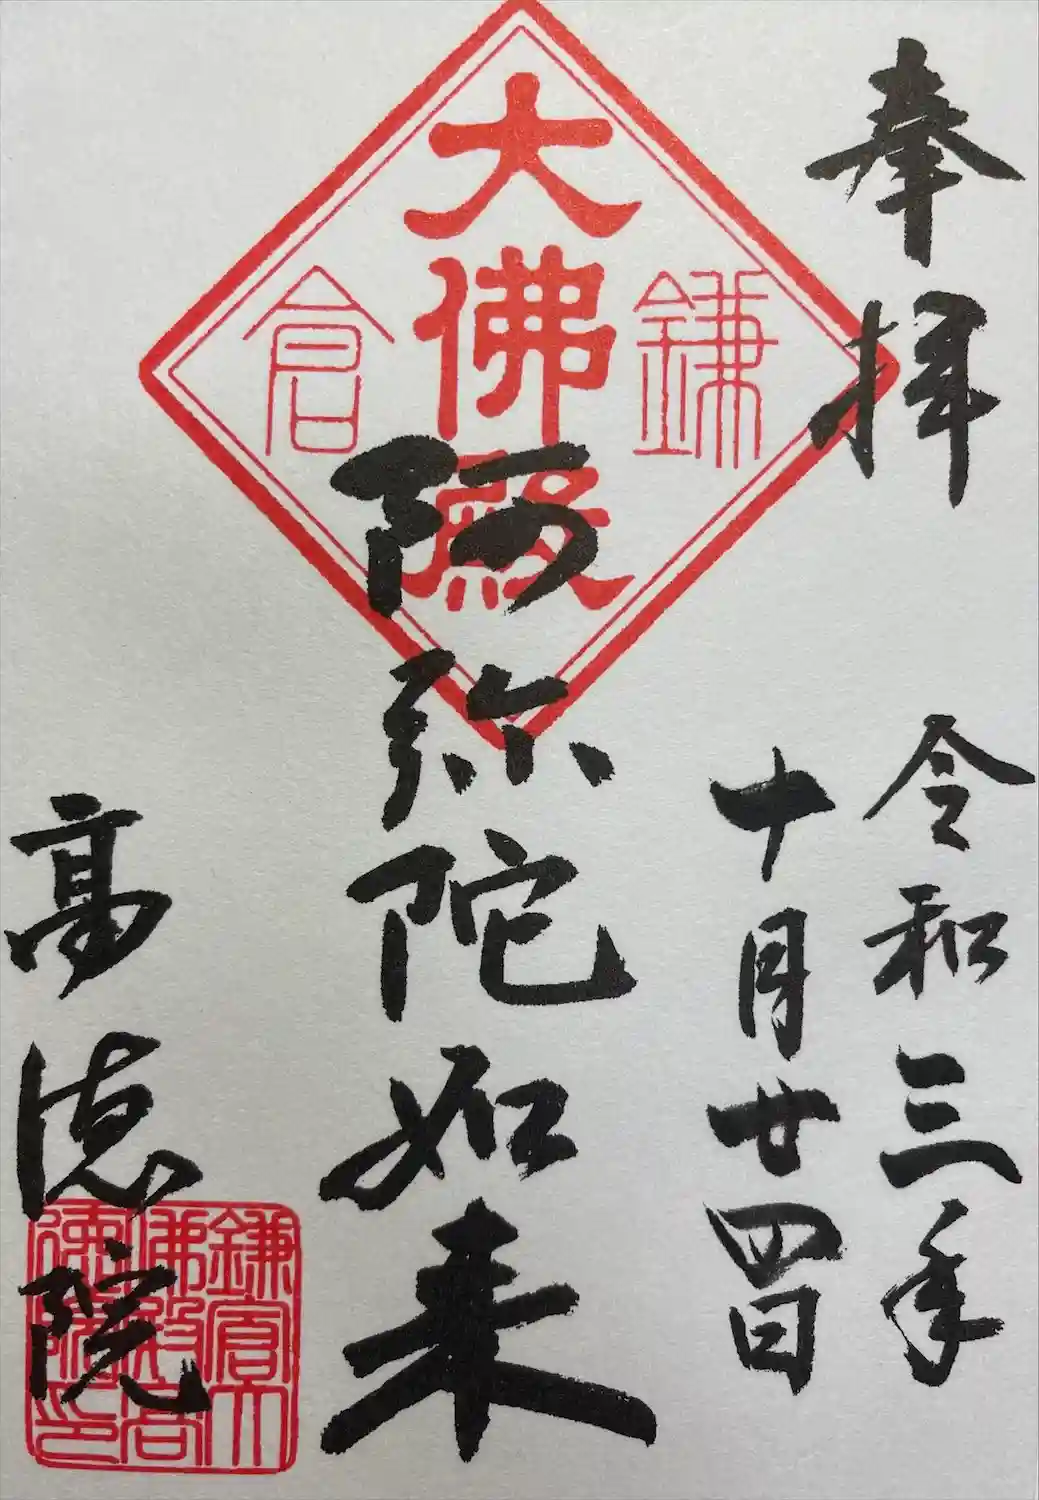 奉拝
令和三年
十月廿四日
鎌倉
大佛殿
阿弥陀如来
高徳院
鎌倉大
佛殿高
德院印